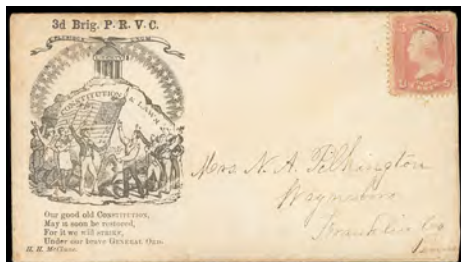 3d Brig. P. R. V. C.
CONSTITUTION & LAWS
Our good old CONSTITUTION,
May it soon be restored,
For it we will STRIKE,
Under our brave GENERAL ORD.
H. H. McClune.
3 3
Mrs. N. A. Pilkington
Waynesboro
Franklin Co